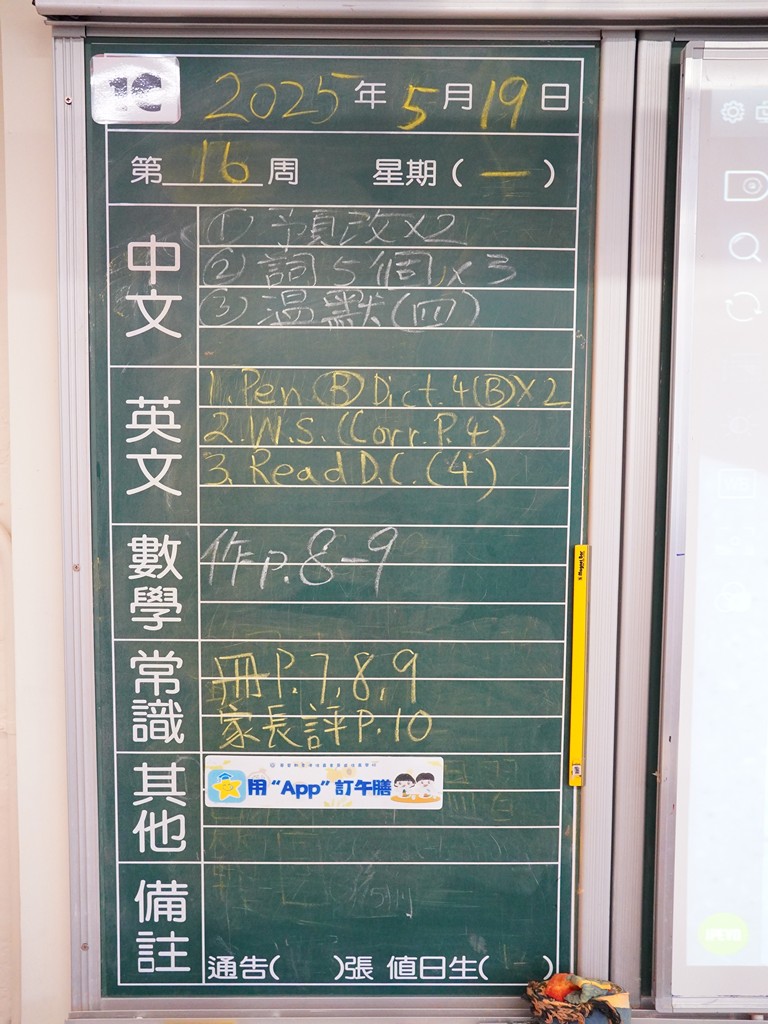 1C
2025年5月19日
第16周 星期(一)
中文
① 預改x2
② 詞5個x3
③ 温默(四)
英文
1. Pen.(B) Dict. 4(B)x2
2. W.S. (Corr. P.4)
3. Read D.C. (4)
數學
作p. 8-9
常識
冊P. 7, 8, 9
家長評P. 10
其他
用“App”訂午膳
備註
通告( )張 值日生( )